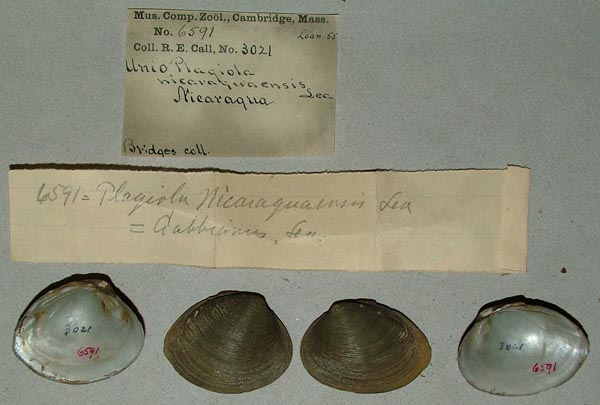 Mus. Comp. Zoöl., Cambridge, Mass.
No. 6591 Loan. 55
Coll. R. E. Call, No. 3021
Unio Plagiola
nicaraguaensis
Lea
Nicaragua
Bridges coll.
6591 = Plagiola Nicaraguaensis Lea
= Gabbianus, Lea.
3021
6591
3021
6591